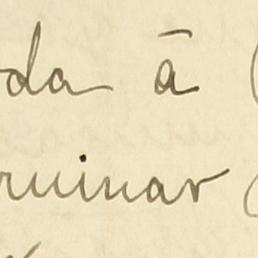 da ā (
ruinar (